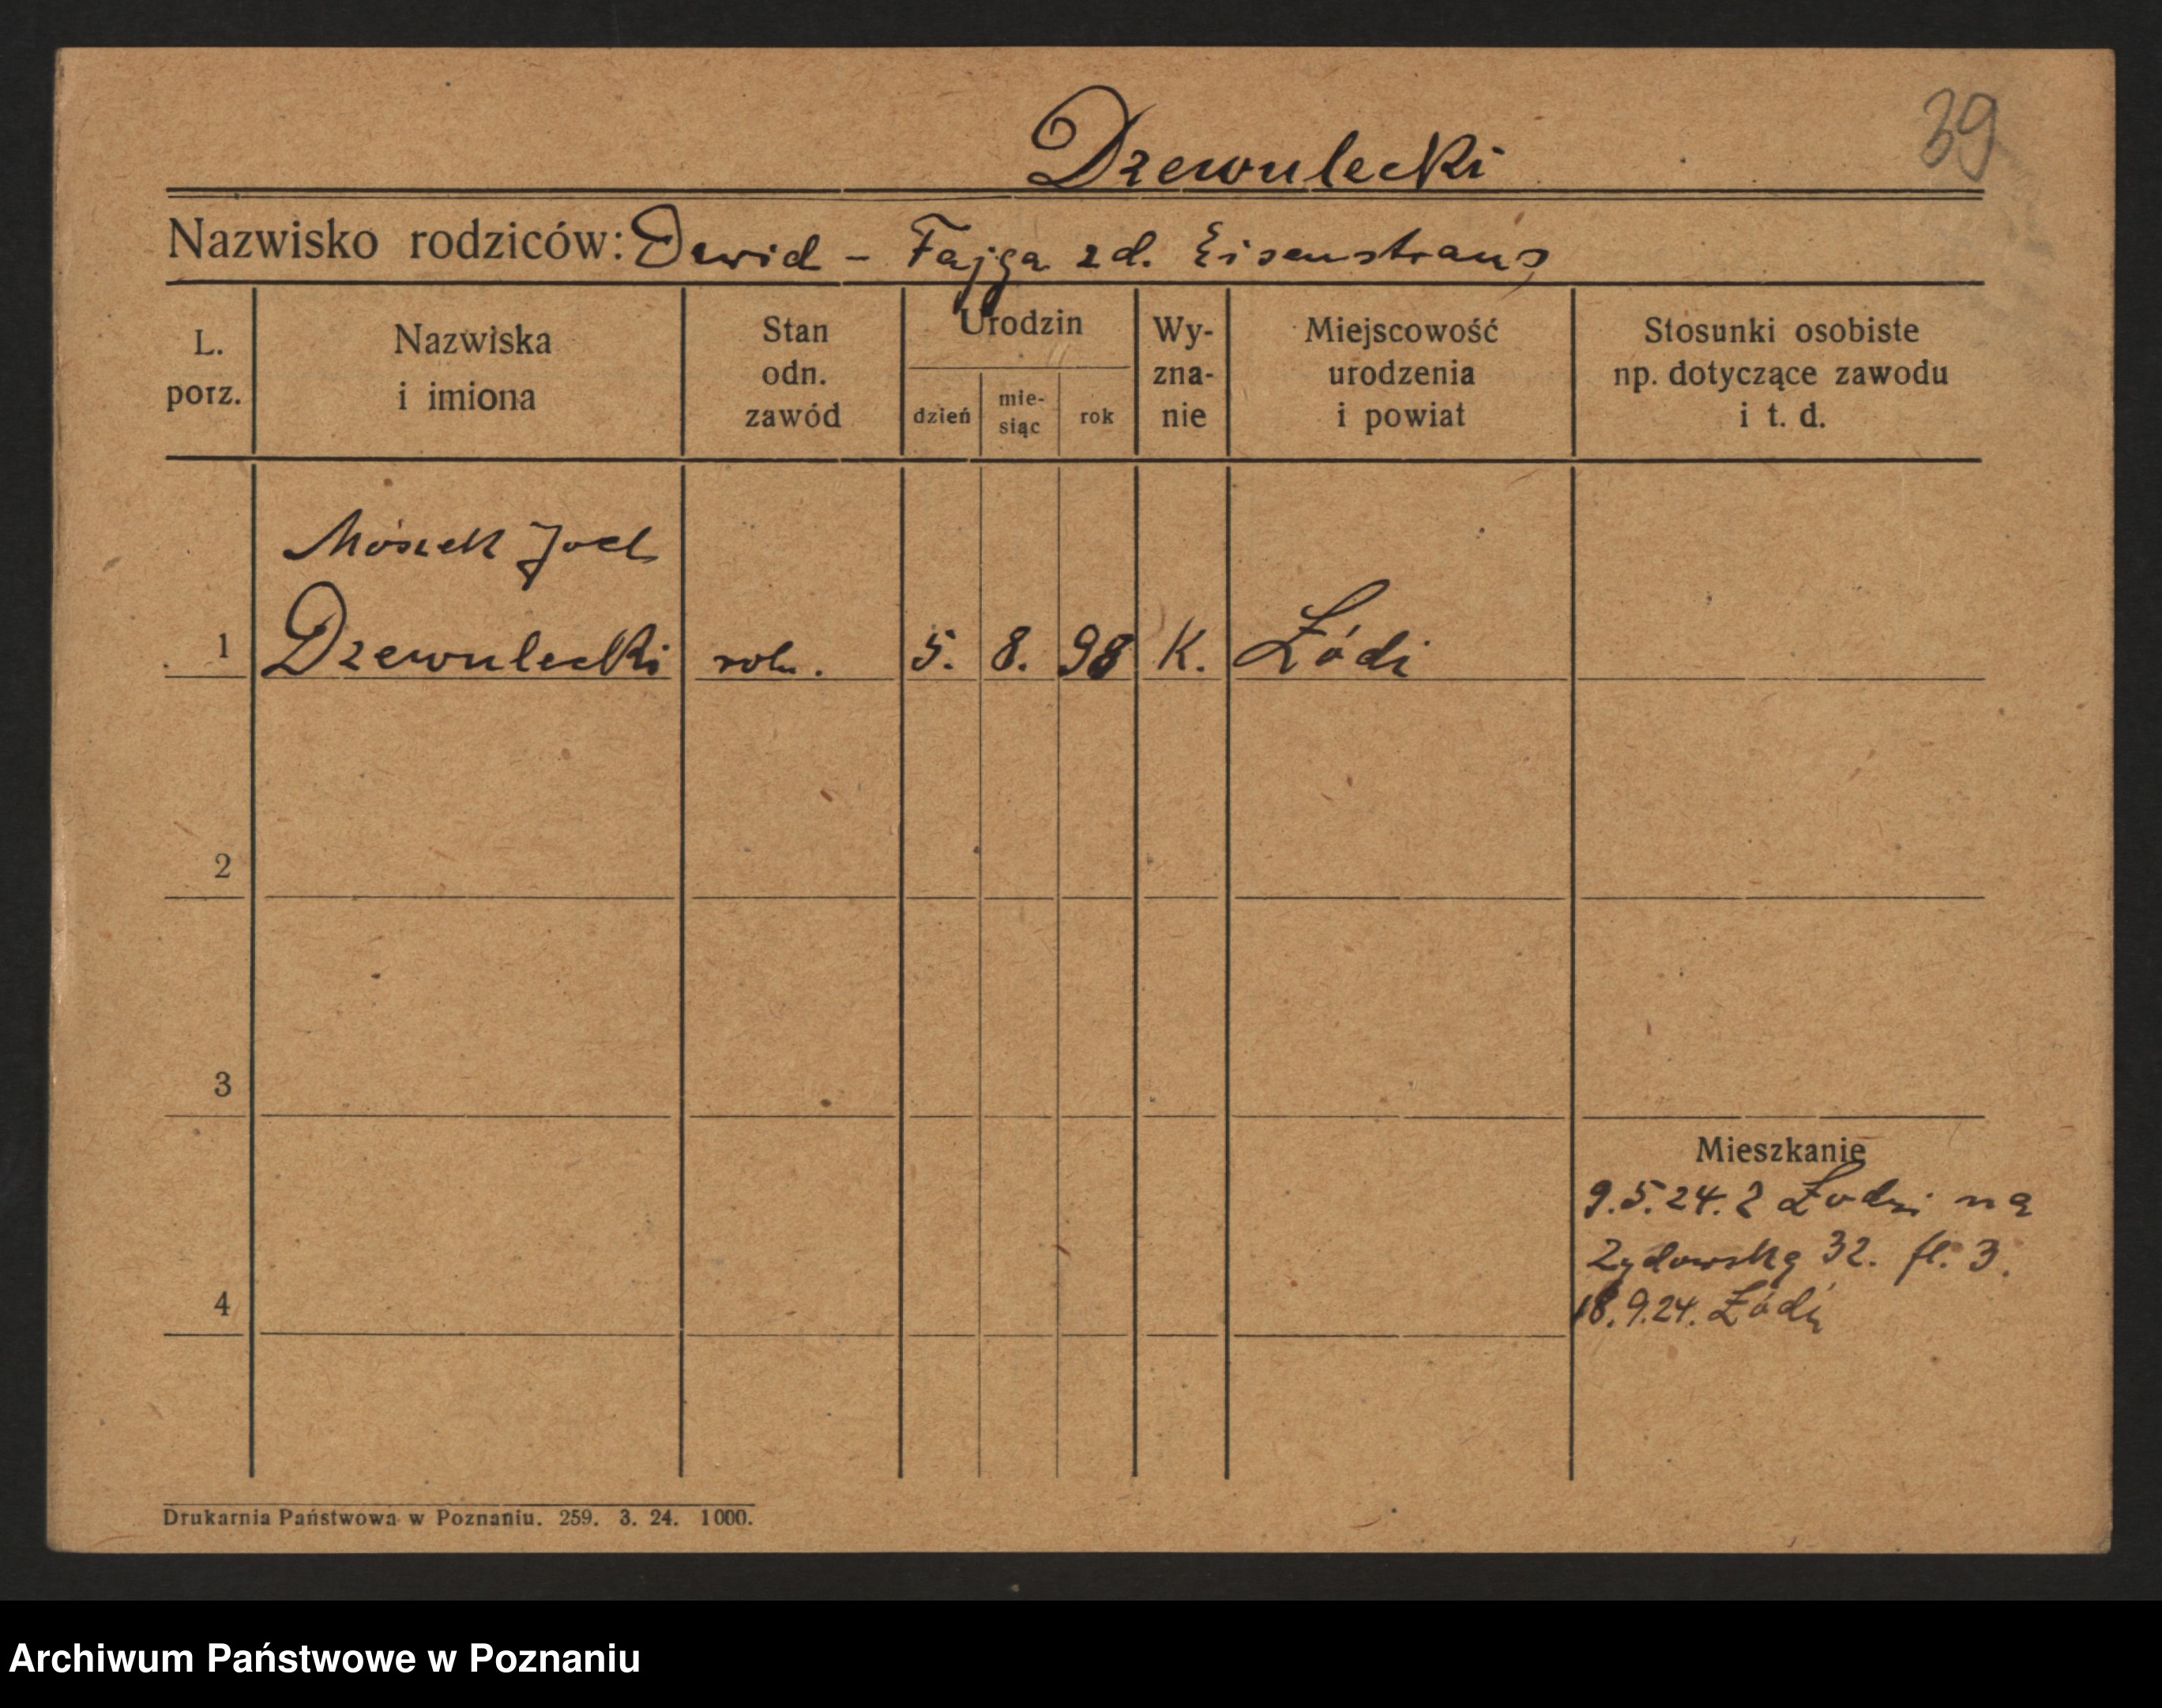 39
Dzewulecki
Nazwisko rodziców: Dawid - Fajga zd. Eisenstraus
L. porz.
Nazwiska i imiona
Stan odn. zawód
Urodzin
dzień
mie-siąc
rok
Wy-zna-nie
Miejscowość urodzenia i powiat
Stosunki osobiste np. dotyczące zawodu i t. d.
Moszek Joel
1 Dzewulecki rob. 5. 8. 98 K. Łódź
2
3
Mieszkanie
9.5.24. z Łodzi na
Żydowską 32. fl. 3.
4
18.9.24. Łódź
Drukarnia Państwowa w Poznaniu. 259. 3. 24. 1000.
Archiwum Państwowe w Poznaniu